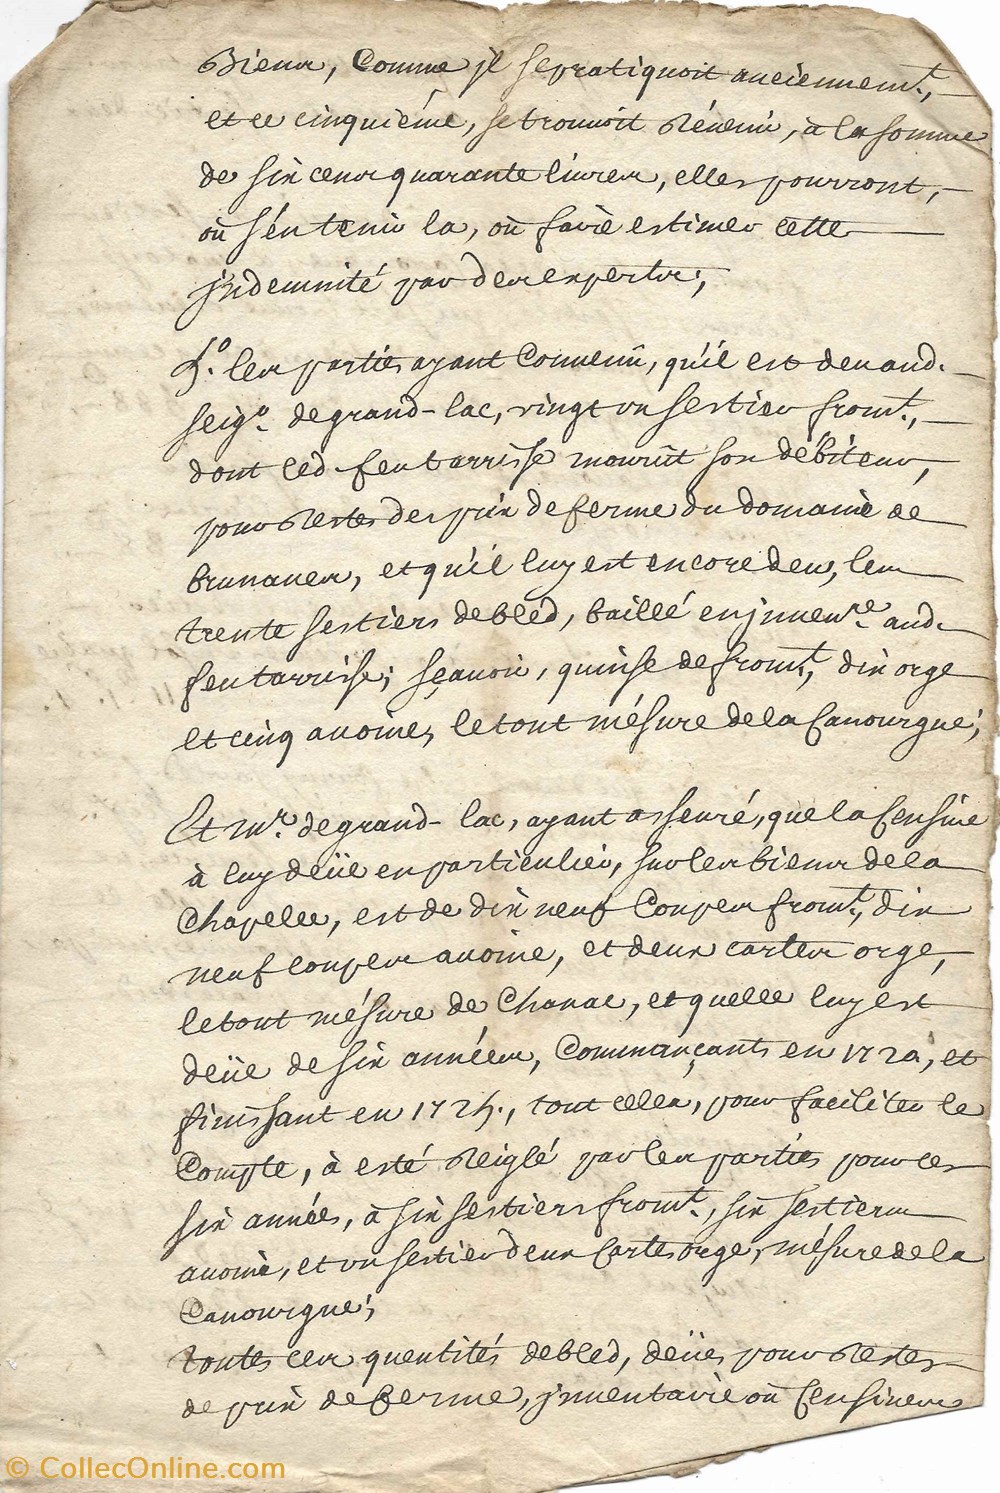 Biens, Comme jl se pratiquoit anciennemt.,
et ce cinquiéme, se trouvoit Révenir, à la somme
de six cens quarante livres, elles pourront,
où s'én tenir la, où faire estimer cette
jndemnité par des experts;
5°. les parties ayant Convenû, qu'il est deu aud.
seigr. de grand-lac, vingt un sestier fromt.,
dont led. feu tarrisse mourût son débiteur,
pour Restes des prix de ferme du domaine de
brunaves, et qu'il luy est encore deu, les
trente sestiers de bled, baillé en jnvenre. aud.
feu tarrisse; sçavoir, quinse de fromt., dix orge
et cinq avoine, le tout mésure de la Canourgue;
Et mr. de grand-lac, ayant asseuré, que la Censive
à luy deüe en particulier, sur les biens de la
Chapelle, est de dix neuf Coupes fromt., dix
neuf coupes avoine, et deux cartes orge,
le tout mésure de Chanac, et quelle luy est
deüe de six années, Commançants en 1720, et
finissant en 1725., tout cella, pour faciliter le
Compte, à esté Réiglé par les parties pour ces
six années, à six sestiers fromt., six sestiers
avoine, et un sestier deux Cartes orge, mésure de la
Canourgue;
toutes ces quentités de bled, deües pour Restes
de prix de ferme, jnventaire où Censives
© CollecOnline.com